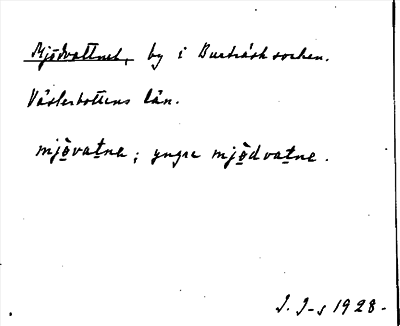 Mjödvattnet, by i Burträsk socken.
Västerbottens län.
mjövatne; yngre mjödvatne.
J. J-s 1928.